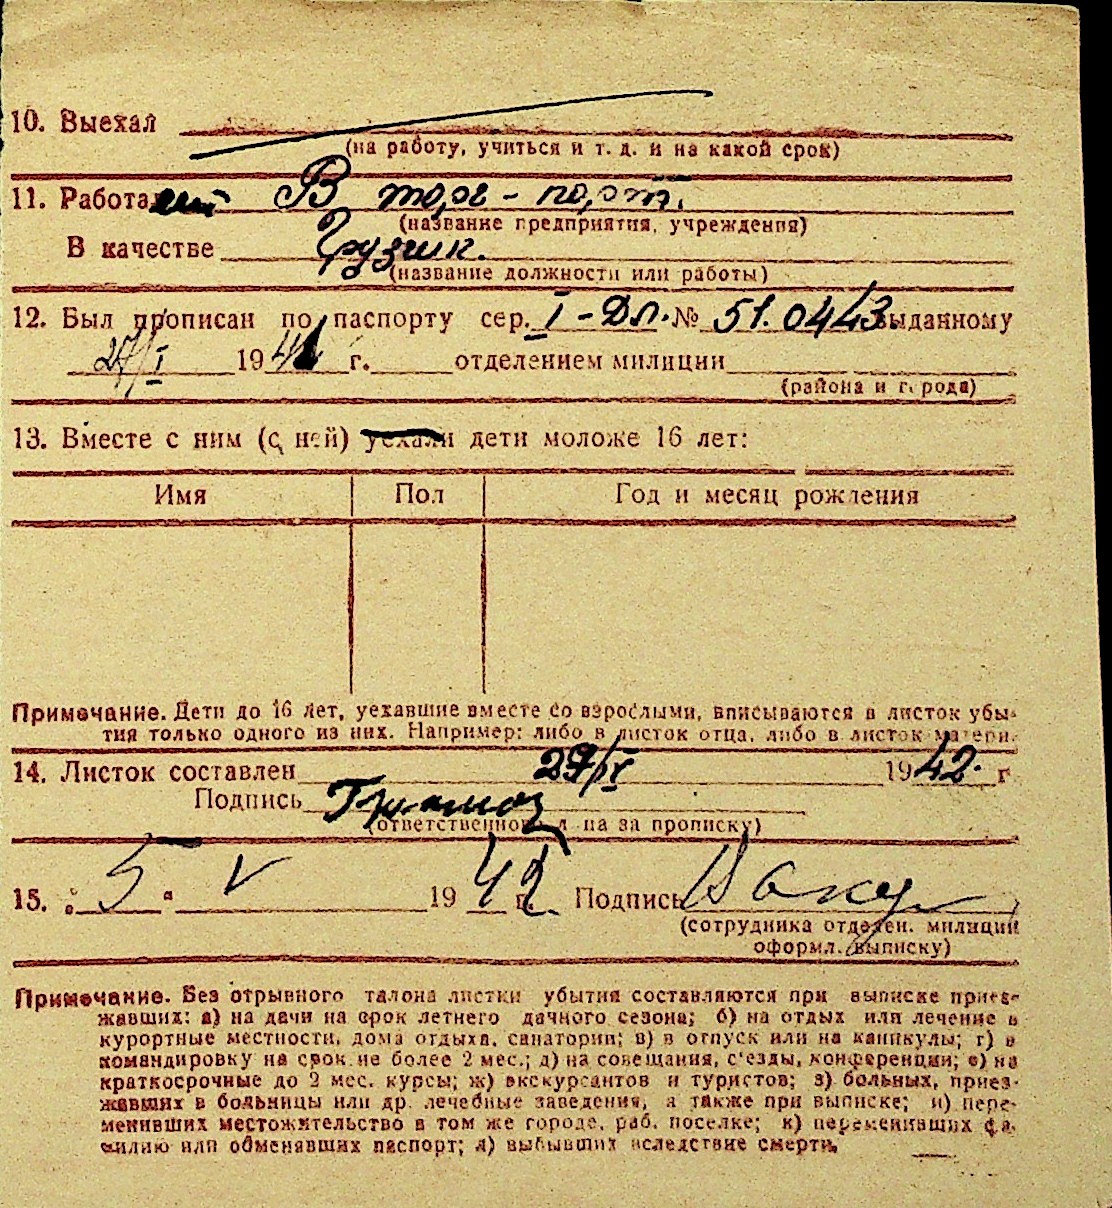 10. Выехал
(на работу, учиться и т. д. и на какой срок)
11. Работа В торг-порт.
(название предприятия, учреждения)
В качестве Грузчик.
(название должности или работы)
12. Был прописан по паспорту сер. I-Дл. № 51.0443 выданному
27/I 1941 г. отделением милиции
(района и города)
13. Вместе с ним (с ней) уехали дети моложе 16 лет:
Имя Пол Год и месяц рождения
Примечание. Дети до 16 лет, уехавшие вместе со взрослыми, вписываются в листок убы-
тия только одного из них. Например: либо в листок отца, либо в листок матери.
14. Листок составлен 29/IV 1942. г
Подпись
(ответственного л на за прописку)
15. „ 5 " V 1942 г. Подпись
(сотрудника отделен. милиции
оформл. выписку)
Примечание. Без отрывного талона листки убытия составляются при выписке приез-
жавших: а) на дачи на срок летнего дачного сезона; б) на отдых или лечение в
курортные местности, дома отдыха, санатории; в) в отпуск или на каникулы; г) в
командировку на срок не более 2 мес.; д) на совещания, с'езды, конференции; е) на
краткосрочные до 2 мес. курсы; ж) экскурсантов и туристов; з) больных, приез-
жавших в больницы или др. лечебные заведения, а также при выписке; и) пере-
менивших местожительство в том же городе, раб. поселке; к) переменивших фа-
милию или обменявших паспорт; л) выбывших вследствие смерти.